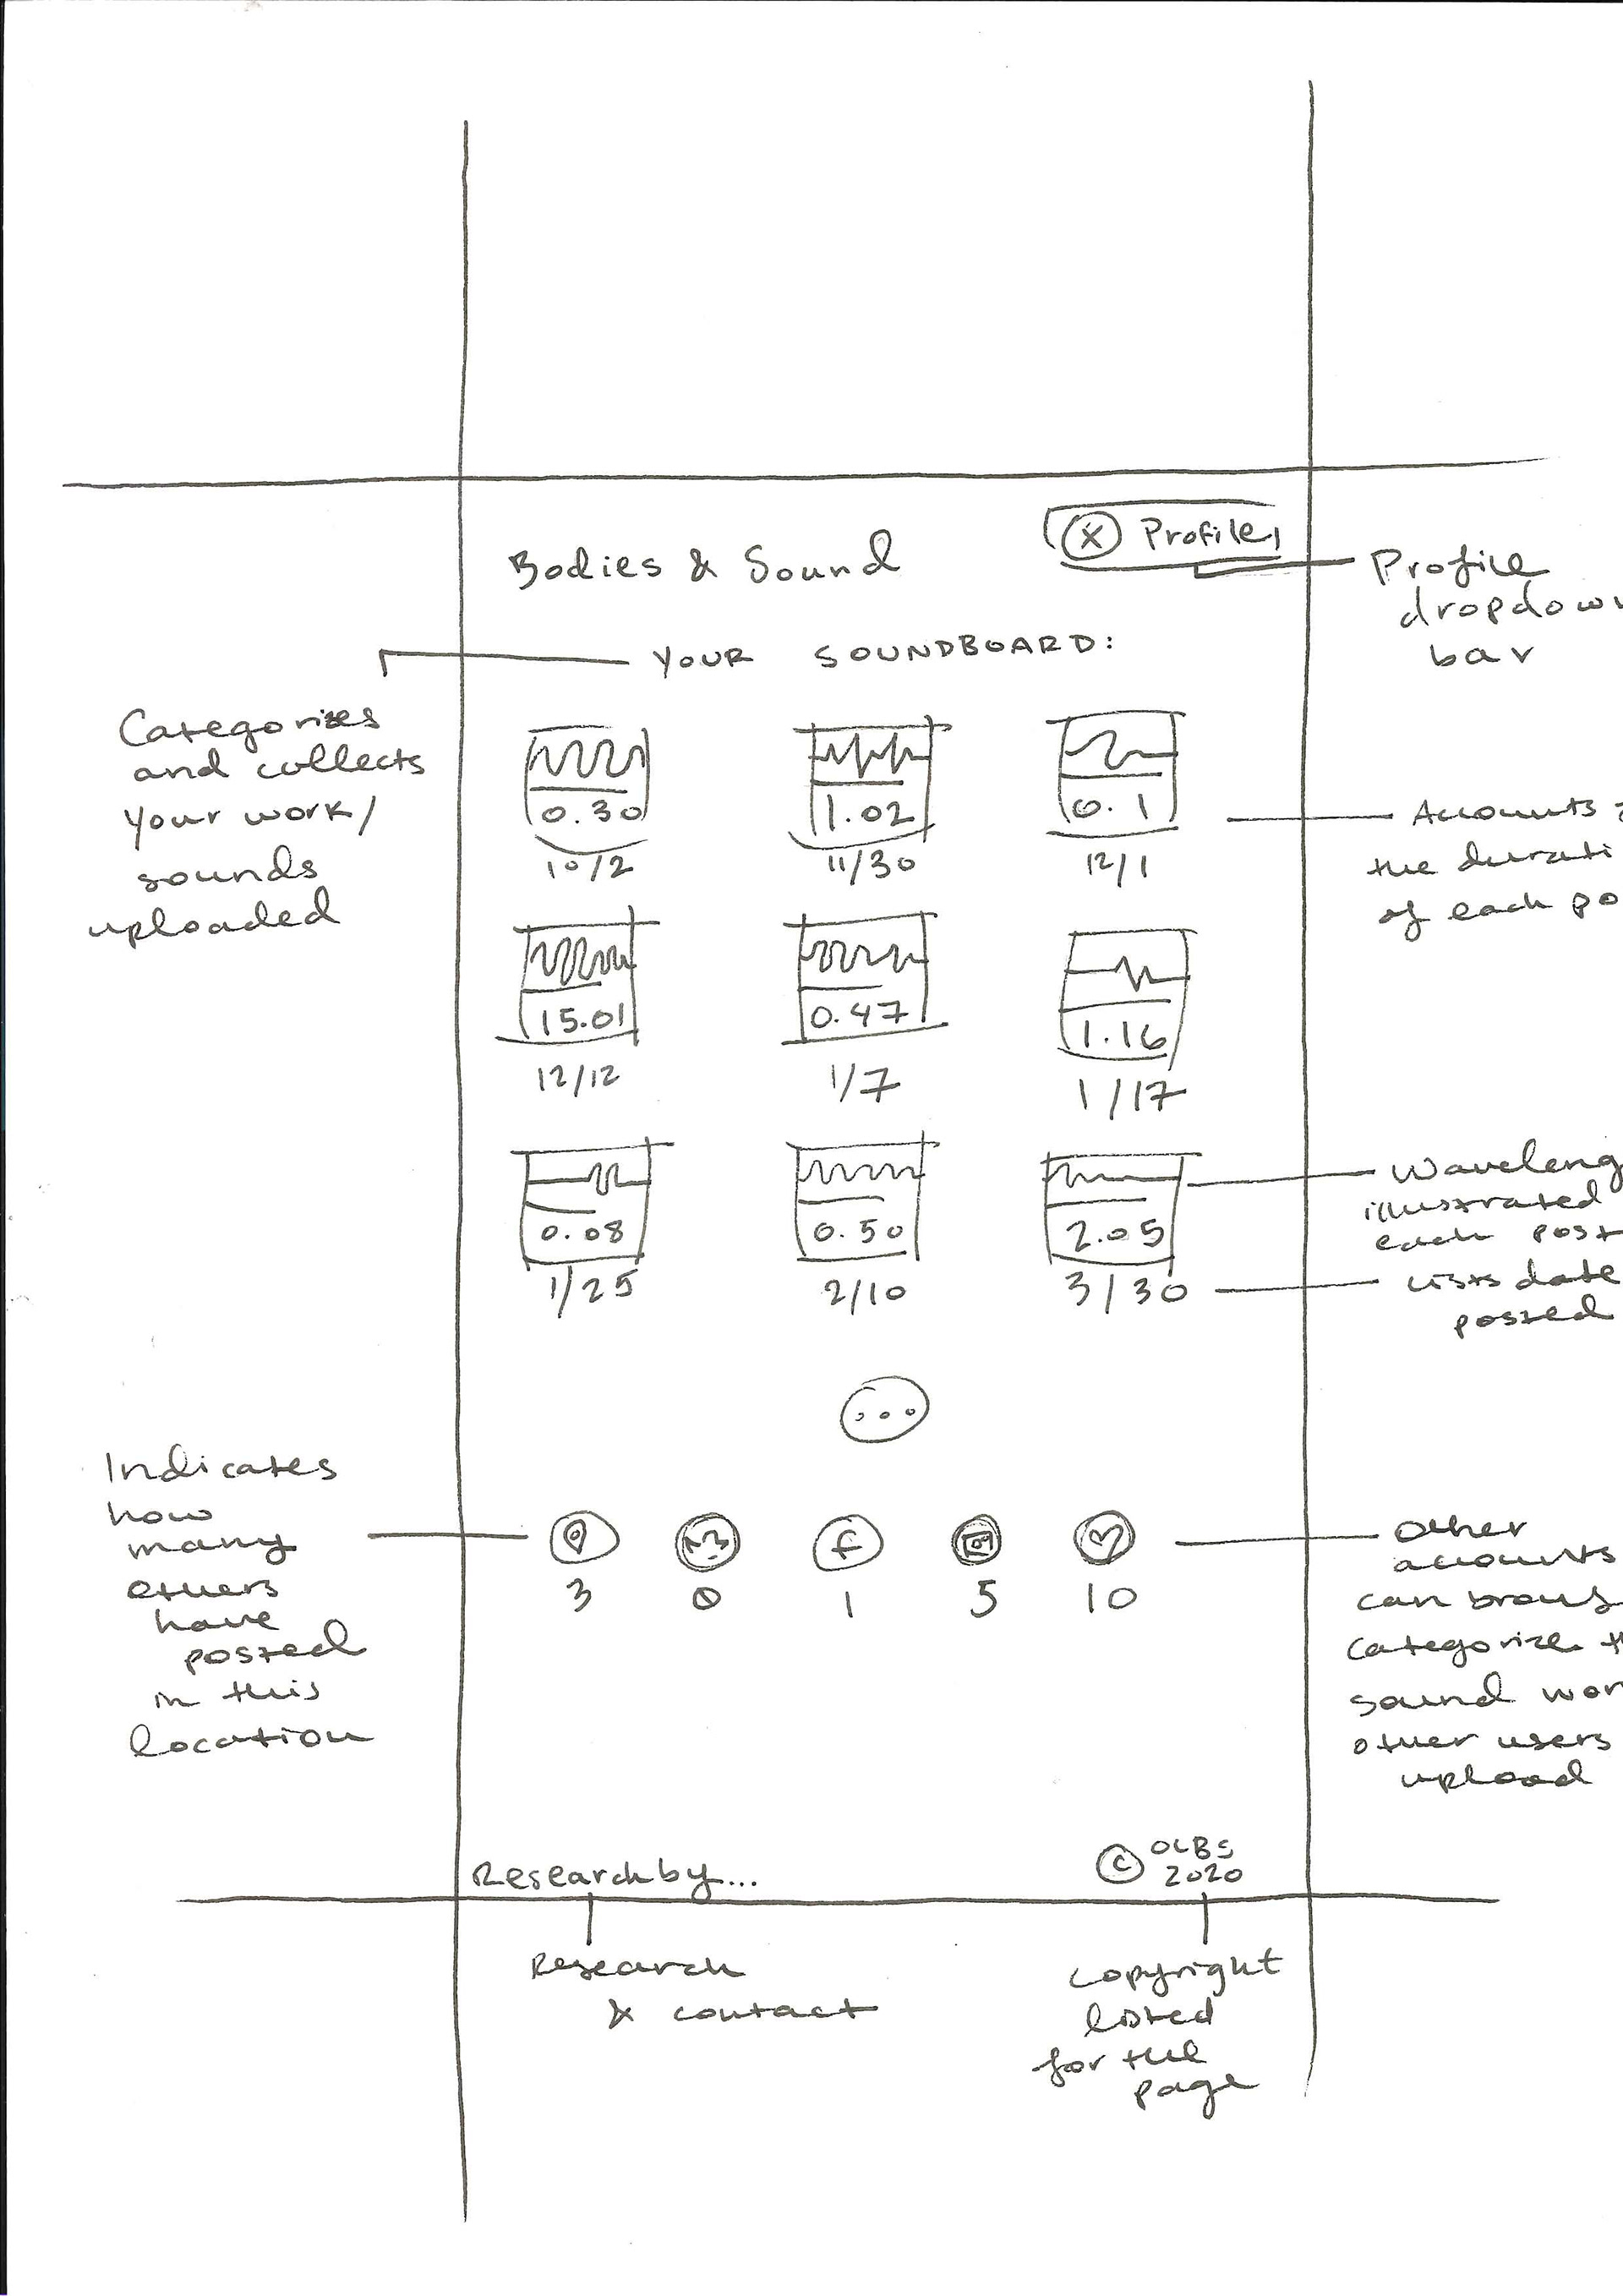 Bodies & Sound
Profile
Profile
dropdow
bar
YOUR SOUNDBOARD:
Categorizes
and collects
your work/
sounds
uploaded
0.30
1.02
0.1
10/2
11/30
12/1
Accounts
the durati
of each po
15.01
0.47
1.16
12/12
1/7
1/17
0.08
0.50
2.05
1/25
2/10
3/30
Waveleng
illustrated
each post
Lists date
posted
...
Indicates
how
many
others
have
posted
in this
location
f
3
0
1
5
10
Other
accounts
can brows
categorize th
sound wor
other users
upload
Research by...
© OLBS
2020
Research
& contact
copyright
listed
for the
page